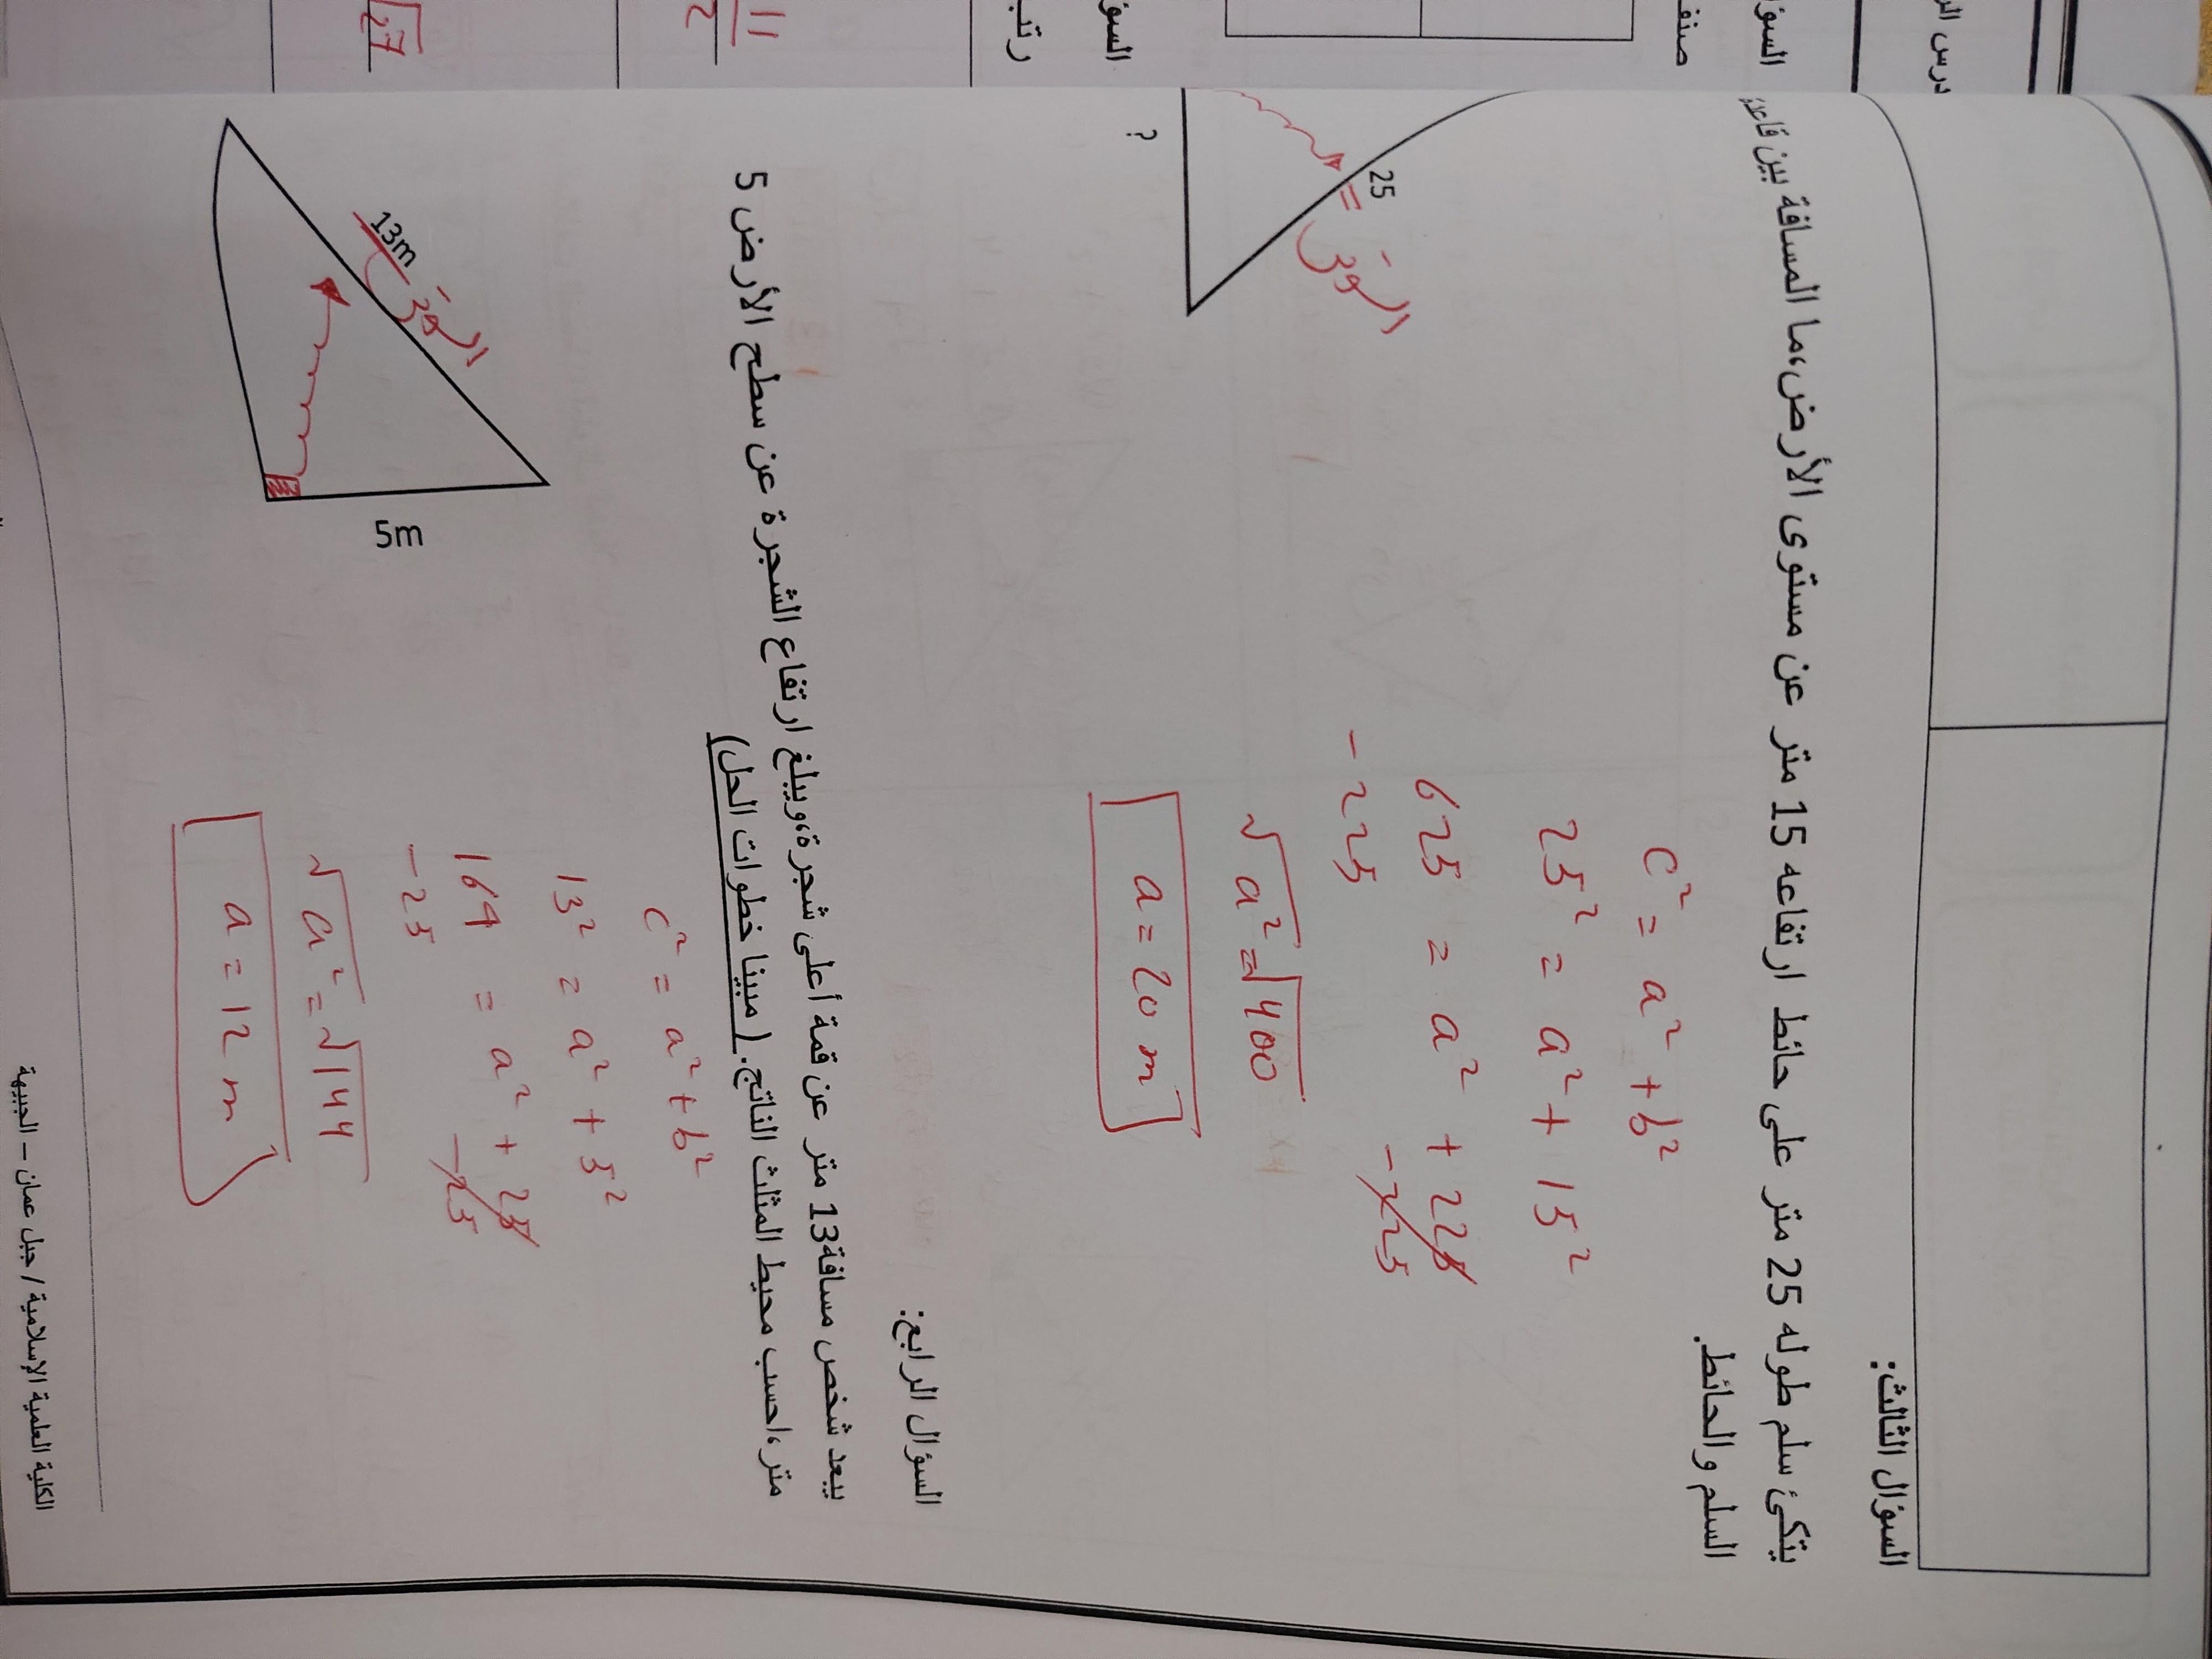 السؤال الثالث:
يتكئ سلم طوله 25 متر على حائط ارتفاعه 15 متر عن مستوى الأرض،ما المسافة بين قاعدة
السلم والحائط.
25
الوتر =
?
c² = a² + b²
25² = a² + 15²
625 = a² + 225
-225 -225
√a² = √400
a = 20 m
السؤال الرابع:
يبعد شخص مسافة13 متر عن قمة أعلى شجرة،ويبلغ ارتفاع الشجرة عن سطح الأرض 5
متر،احسب محيط المثلث الناتج. ( مبينا خطوات الحل)
13m
الوتر
5m
c² = a² + b²
13² = a² + 5²
169 = a² + 25
-25 -25
√a² = √144
a = 12 m
الكلية العلمية الإسلامية / جبل عمان – الجبيهة
درس
صنف
رتب
11
2